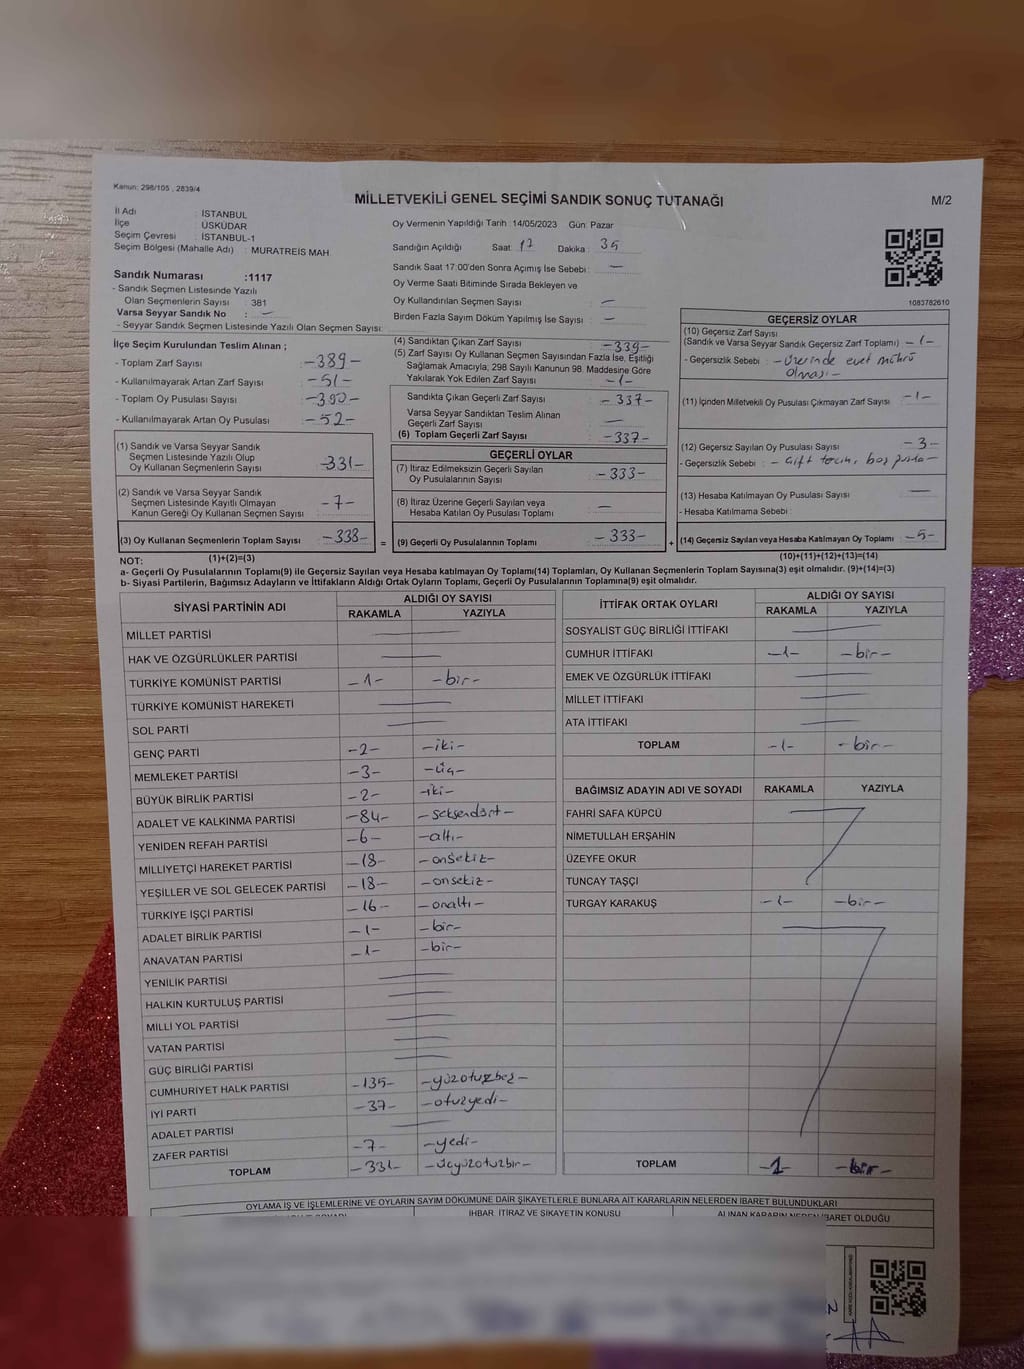 Kanun: 298/105 , 2839/4
MİLLETVEKİLİ GENEL SEÇİMİ SANDIK SONUÇ TUTANAĞI
M/2
İl Adı : İSTANBUL
İlçe : ÜSKÜDAR
Seçim Çevresi : İSTANBUL-1
Seçim Bölgesi (Mahalle Adı) : MURATREİS MAH.
Oy Vermenin Yapıldığı Tarih :14/05/2023 Gün: Pazar
Sandığın Açıldığı Saat: 17 Dakika : 35
Sandık Saat 17:00'den Sonra Açımış İse Sebebi : —
Oy Verme Saati Bitiminde Sırada Bekleyen ve
Oy Kullandırılan Seçmen Sayısı : —
Birden Fazla Sayım Döküm Yapılmış İse Sayısı : —
1083782610
Sandık Numarası :1117
- Sandık Seçmen Listesinde Yazılı
Olan Seçmenlerin Sayısı : 381
Varsa Seyyar Sandık No : —
- Seyyar Sandık Seçmen Listesinde Yazılı Olan Seçmen Sayısı:
İlçe Seçim Kurulundan Teslim Alınan ;
- Toplam Zarf Sayısı : -389-
- Kullanılmayarak Artan Zarf Sayısı : -51-
- Toplam Oy Pusulası Sayısı : -390-
- Kullanılmayarak Artan Oy Pusulası : -52-
(1) Sandık ve Varsa Seyyar Sandık
Seçmen Listesinde Yazılı Olup
Oy Kullanan Seçmenlerin Sayısı : -331-
(2) Sandık ve Varsa Seyyar Sandık
Seçmen Listesinde Kayıtlı Olmayan
Kanun Gereği Oy Kullanan Seçmen Sayısı : -7-
(3) Oy Kullanan Seçmenlerin Toplam Sayısı : -338-
(1)+(2)=(3)
(4) Sandıktan Çıkan Zarf Sayısı : -339-
(5) Zarf Sayısı Oy Kullanan Seçmen Sayısından Fazla İse, Eşitliği
Sağlamak Amacıyla; 298 Sayılı Kanunun 98. Maddesine Göre
Yakılarak Yok Edilen Zarf Sayısı : -1-
Sandıkta Çıkan Geçerli Zarf Sayısı : -337-
Varsa Seyyar Sandıktan Teslim Alınan
Geçerli Zarf Sayısı : —
(6) Toplam Geçerli Zarf Sayısı : -337-
GEÇERLİ OYLAR
(7) İtiraz Edilmeksizin Geçerli Sayılan
Oy Pusulalarının Sayısı : -333-
(8) İtiraz Üzerine Geçerli Sayılan veya
Hesaba Katılan Oy Pusulası Toplamı : —
= (9) Geçerli Oy Pusulalarının Toplamı : -333- +
GEÇERSİZ OYLAR
(10) Geçersiz Zarf Sayısı
(Sandık ve Varsa Seyyar Sandık Geçersiz Zarf Toplamı) : -1-
- Geçersizlik Sebebi : - üzerinde evet mührü
olması -
(11) İçinden Milletvekili Oy Pusulası Çıkmayan Zarf Sayısı : -1-
(12) Geçersiz Sayılan Oy Pusulası Sayısı : -3-
- Geçersizlik Sebebi : - çift tercih, boş pusula -
(13) Hesaba Katılmayan Oy Pusulası Sayısı : —
- Hesaba Katılmama Sebebi :
(14) Geçersiz Sayılan veya Hesaba Katılmayan Oy Toplamı : -5-
(10)+(11)+(12)+(13)=(14)
NOT:
a- Geçerli Oy Pusulalarının Toplamı(9) ile Geçersiz Sayılan veya Hesaba katılmayan Oy Toplamı(14) Toplamları, Oy Kullanan Seçmenlerin Toplam Sayısına(3) eşit olmalıdır. (9)+(14)=(3)
b- Siyasi Partilerin, Bağımsız Adayların ve İttifakların Aldığı Ortak Oyların Toplamı, Geçerli Oy Pusulalarının Toplamına(9) eşit olmalıdır.
SİYASİ PARTİNİN ADI ALDIĞI OY SAYISI
RAKAMLA YAZIYLA
MİLLET PARTİSİ —
HAK VE ÖZGÜRLÜKLER PARTİSİ —
TÜRKİYE KOMÜNİST PARTİSİ -1- -bir-
TÜRKİYE KOMÜNİST HAREKETİ —
SOL PARTİ —
GENÇ PARTİ -2- -iki-
MEMLEKET PARTİSİ -3- -üç-
BÜYÜK BİRLİK PARTİSİ -2- -iki-
ADALET VE KALKINMA PARTİSİ -84- -seksendört-
YENİDEN REFAH PARTİSİ -6- -altı-
MİLLİYETÇİ HAREKET PARTİSİ -18- -onsekiz-
YEŞİLLER VE SOL GELECEK PARTİSİ -18- -onsekiz-
TÜRKİYE İŞÇİ PARTİSİ -16- -onaltı-
ADALET BİRLİK PARTİSİ -1- -bir-
ANAVATAN PARTİSİ -1- -bir-
YENİLİK PARTİSİ —
HALKIN KURTULUŞ PARTİSİ —
MİLLİ YOL PARTİSİ —
VATAN PARTİSİ —
GÜÇ BİRLİĞİ PARTİSİ —
CUMHURİYET HALK PARTİSİ -135- -yüzotuzbeş-
İYİ PARTİ -37- -otuzyedi-
ADALET PARTİSİ —
ZAFER PARTİSİ -7- -yedi-
TOPLAM -331- -üçyüzotuzbir-
İTTİFAK ORTAK OYLARI ALDIĞI OY SAYISI
RAKAMLA YAZIYLA
SOSYALİST GÜÇ BİRLİĞİ İTTİFAKI —
CUMHUR İTTİFAKI -1- -bir-
EMEK VE ÖZGÜRLÜK İTTİFAKI —
MİLLET İTTİFAKI —
ATA İTTİFAKI —
TOPLAM -1- -bir-
BAĞIMSIZ ADAYIN ADI VE SOYADI RAKAMLA YAZIYLA
FAHRİ SAFA KÜPCÜ
NİMETULLAH ERŞAHİN
ÜZEYFE OKUR
TUNCAY TAŞÇI
TURGAY KARAKUŞ -1- -bir-
TOPLAM -1- -bir-
OYLAMA İŞ VE İŞLEMLERİNE VE OYLARIN SAYIM DÖKÜMÜNE DAİR ŞİKAYETLERLE BUNLARA AİT KARARLARIN NELERDEN İBARET BULUNDUKLARI
İHBAR, İTİRAZ VE ŞİKAYETİN KONUSU ALINAN KARARIN NEDEN İBARET OLDUĞU